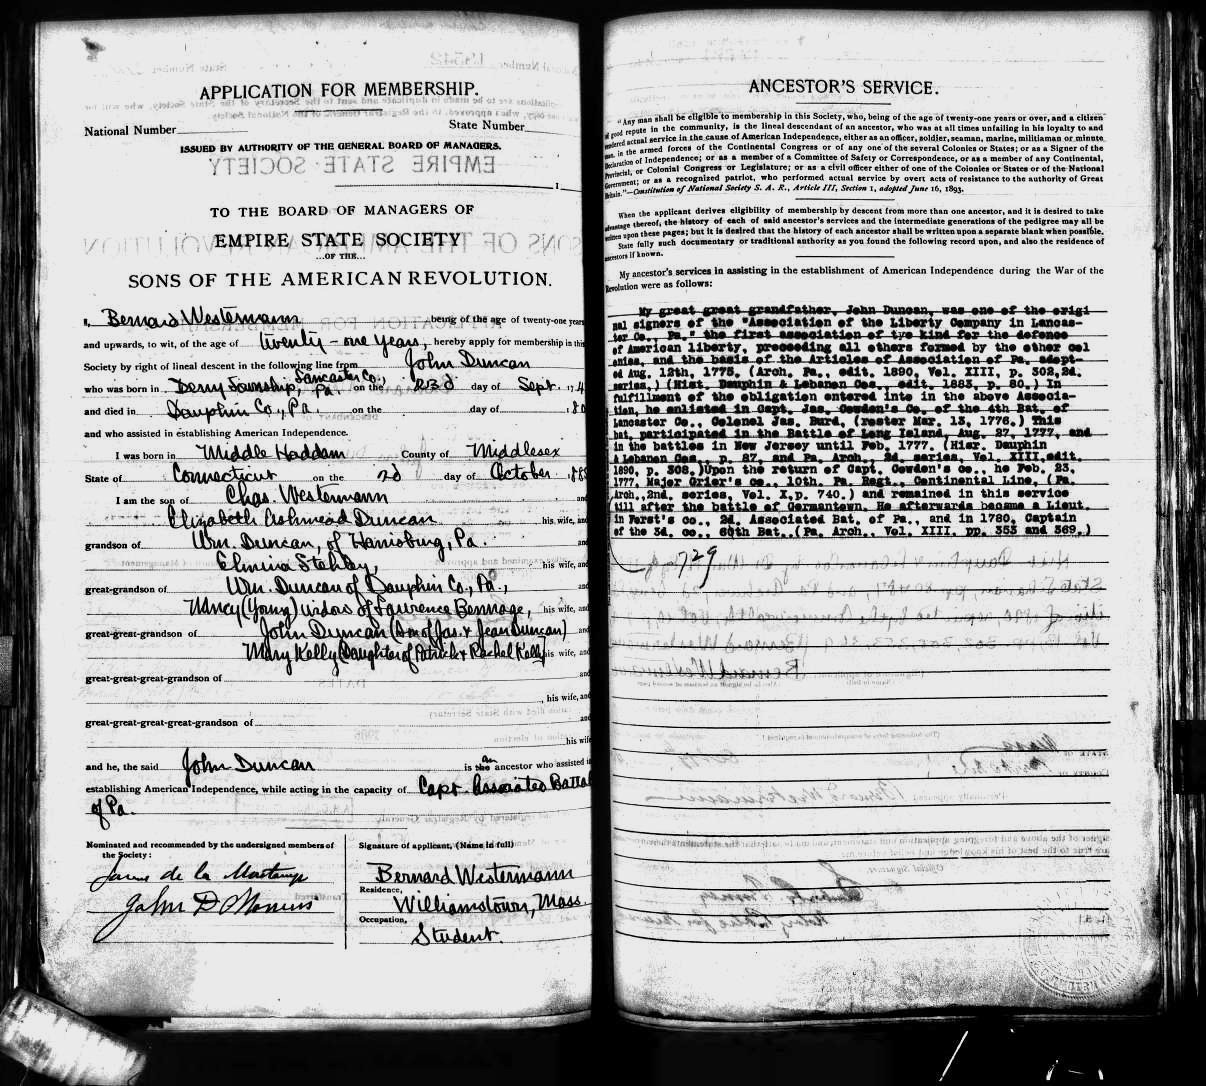 APPLICATION FOR MEMBERSHIP.
National Number
State Number
ISSUED BY AUTHORITY OF THE GENERAL BOARD OF MANAGERS.
1
TO THE BOARD OF MANAGERS OF
EMPIRE STATE SOCIETY
...OF THE...
SONS OF THE AMERICAN REVOLUTION.
I, Bernard Westermann being of the age of twenty-one years
and upwards, to wit, of the age of twenty-one years, hereby apply for membership in this
Society by right of lineal descent in the following line from John Duncan
who was born in Derry Township, Lancaster Co., Pa. on the 23d day of Sept. , 174
and died in Dauphin Co., Pa. on the day of , 180
and who assisted in establishing American Independence.
I was born in Middle Haddam County of Middlesex
State of Connecticut on the 2d day of October 188
I am the son of Chas. Westermann and
Elizabeth Ashmead Duncan his wife, and
grandson of Wm. Duncan, of Harrisburg, Pa. and
Elmina Stehley, his wife, and
great-grandson of Wm. Duncan of Dauphin Co., Pa., and
Nancy (Young) widow of Lawrence Bennage, his wife, and
great-great-grandson of John Duncan (Son of Jas. & Jean Duncan) and
Mary Kelly (Daughter of Patrick & Rachel Kelly) his wife, and
great-great-great-grandson of and
, his wife, and
great-great-great-great-grandson of and
his wife
and he, the said John Duncan is the an ancestor who assisted in
establishing American Independence, while acting in the capacity of Capt. Associated Battal
of Pa.
Nominated and recommended by the undersigned members of
the Society:
John D
Signature of applicant, (Name in full)
Bernard Westermann
Residence,
Williamstown, Mass.
Occupation,
Student.
ANCESTOR'S SERVICE.
"Any man shall be eligible to membership in this Society, who, being of the age of twenty-one years or over, and a citizen
of good repute in the community, is the lineal descendant of an ancestor, who was at all times unfailing in his loyalty to and
rendered actual service in the cause of American Independence, either as an officer, soldier, seaman, marine, militiaman or minute
man, in the armed forces of the Continental Congress or of any one of the several Colonies or States; or as a Signer of the
Declaration of Independence; or as a member of a Committee of Safety or Correspondence, or as a member of any Continental,
Provincial, or Colonial Congress or Legislature; or as a civil officer either of one of the Colonies or States or of the National
Government; or as a recognized patriot, who performed actual service by overt acts of resistance to the authority of Great
Britain."—Constitution of National Society S. A. R., Article III, Section 1, adopted June 16, 1893.
When the applicant derives eligibility of membership by descent from more than one ancestor, and it is desired to take
advantage thereof, the history of each of said ancestor's services and the intermediate generations of the pedigree may all be
written upon these pages; but it is desired that the history of each ancestor shall be written upon a separate blank when possible.
State fully such documentary or traditional authority as you found the following record upon, and also the residence of
ancestors if known.
My ancestor's services in assisting in the establishment of American Independence during the War of the
Revolution were as follows:
My great great grandfather, John Duncan, was one of the origi
nal signers of the "Association of the Liberty Company in Lancas-
ter Co., Pa." the first association of tye kind for the defence
of American liberty, preceeding all others formed by the other col
onies, and the basis of the Articles of Association of Pa. adopt-
ed Aug. 12th, 1775. (Arch. Pa., edit. 1890, Vol. XIII, p. 302,2d.
series.) (Hist. Dauphin & Lebanon Cos., edit. 1883, p. 80.) In
fulfillment of the obligation entered into in the above Associa-
tion, he enlisted in Capt. Jas. Cowden's Co. of the 4th Bat. of
Lancaster Co., Colonel Jas. Burd, (roster Mar. 13, 1776.) This
bat. participated in the Battle of Long Island, Aug. 27, 1777, and
in the battles in New Jersey until Feb. 1777. (Hisr. Dauphin
& Lebanon Cos., p. 87, and Pa. Arch., 2d. series, Vol. XIII,edit.
1890, p. 308.)Upon the return of Capt. Cowden's co., he Feb. 23,
1777, Major Grier's co., 10th. Pa. Regt., Continental Line, (Pa.
Arch.,2nd. series, Vol. X,p. 740.) and remained in this service
till after the battle of Germantown. He afterwards became a Lieut.
in Ferst's co., 2d. Associated Bat. of Pa., and in 1780, Captain
of the 3d. co., 60th Bat.,(Pa. Arch., Vol. XIII, pp. 353 and 369.)
729